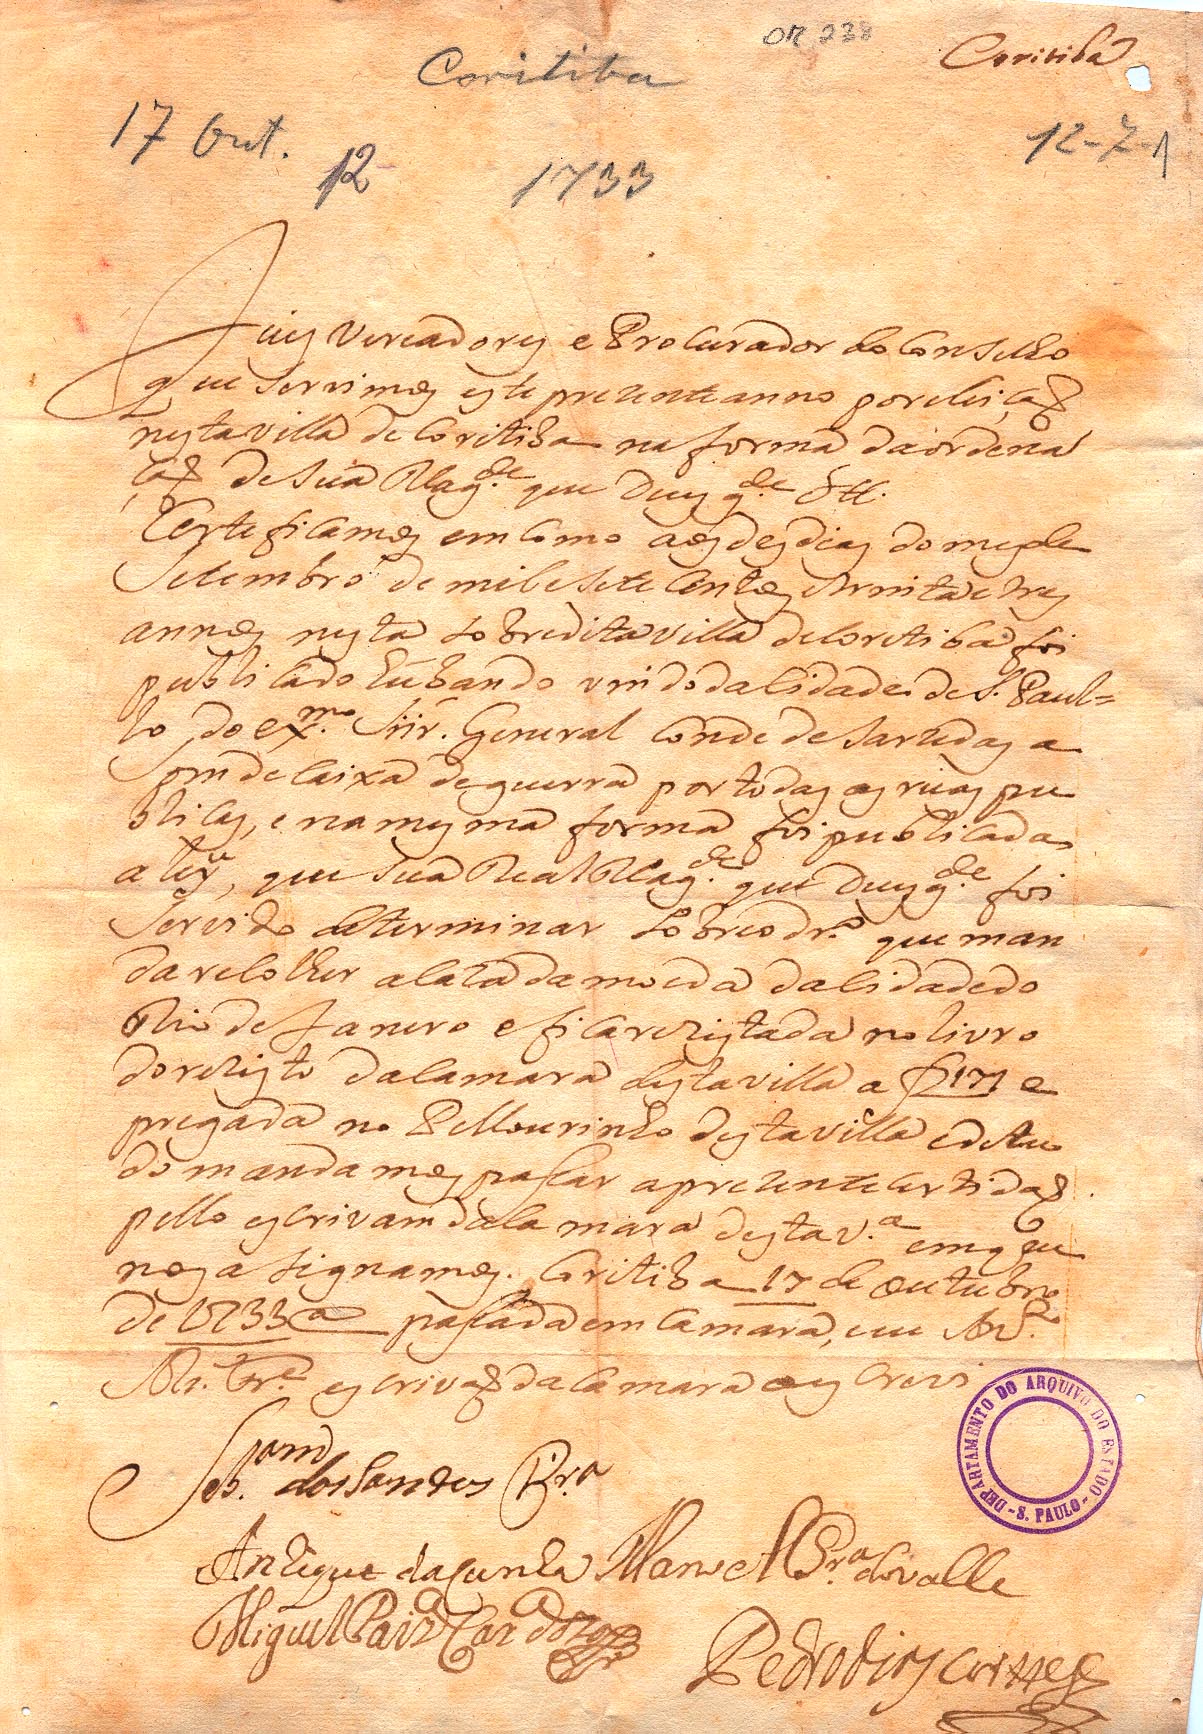 OR 238
Coritiba
Coritiba
17 Out.
12-7-1
12
1733
Juis Vereadores e Procurador do Conselho
que servimos este prezente anno por eleiçaõ
nesta villa de Coritiba na forma da ordena
çaõ de Sua Mag.de que Deus g.de &tt.
Certeficamos em como aos des dias do mes de
Setembro de mil e sete Centos e trinta e tres
annos nesta sobredita villa de Coretiba foi
publicado hú bando vindo da Cidade de S. Paul=
lo do ex.mo Snr. General Conde de Sarzedas a
som de Caixa de guerra por todas as ruas pu
blicas, e na mesma forma foi publicada
a ley, que Sua Real Mag.de que Deus g.de foi
Servido determinar sobre o dr.o que man
da recolher a Caza da moeda da Cidade do
Rio de Janero e fica rezistada no livro
do rezisto da Camara desta villa a f 171 e
pregada no Pellourinho desta villa e de tu
do mandamos passar a prezente Certidaõ
pello escrivam da Camara desta v.a em que
nos asignamos. Coritiba 17 de outubro
de 1733 a passada em Camara, eu
escrivaõ da Camara o escrevi
Seb.am dos Santos Pr.a
Antique da Cunha Manoel Pr.a do Valle
Miguel Paiz Cardozo
Pedro Dias Cortes
DEPARTAMENTO DO ARQUIVO DO ESTADO - S. PAULO -